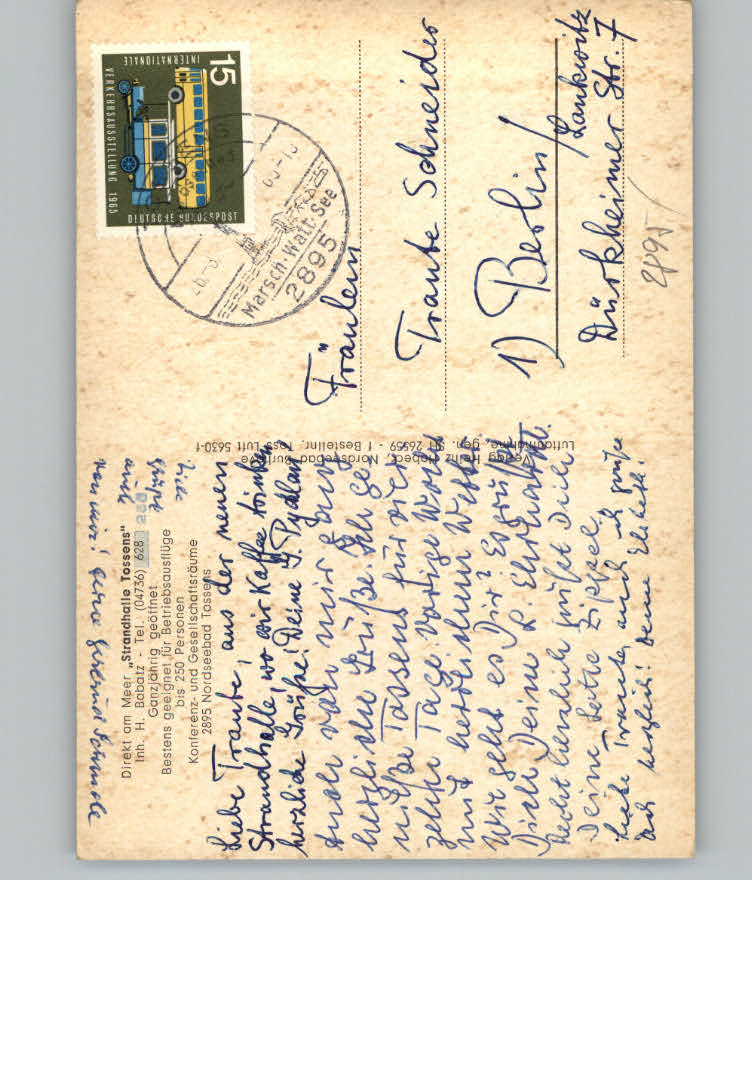 Direkt am Meer „Strandhalle Tossens"
Inh. H. Babatz - Tel. (04736) 628
Ganzjährig geöffnet
Bestens geeignet für Betriebsausflüge
bis 250 Personen
Konferenz- und Gesellschaftsräume
2895 Nordseebad Tossens
Viele
Grüße
auch
von mir!
Liebe Traute, aus der neuen
Strandhalle, wo wir Kaffee trinken
herzliche Grüße! Deine
Auch von mir Dir
herzliche Grüße. Ich ge-
nieße Tossens für
Tage. Vorige Woche
mit herrlichem Wetter.
Wie geht es Dir? Es grüßt
Dich Deine L. Ehrhardt.
Recht herzlich grüßt Dich
Deine
Liebe Traute, auch ich grüße
Dich herzlich! Deine
Verlag Heinz Hobeck, Nordseebad Burhave
Luftaufnahme, gen. SH 26559 - 1 Bestellnr. Toss Luft 5630-1
15
INTERNATIONALE
VERKEHRSAUSSTELLUNG 1965
DEUTSCHE BUNDESPOST
Marsch·Watt·See
2895
Fräulein
Traute Schneider
1) Berlin/
Lankwitz
Dürkheimer Str. 7
2895